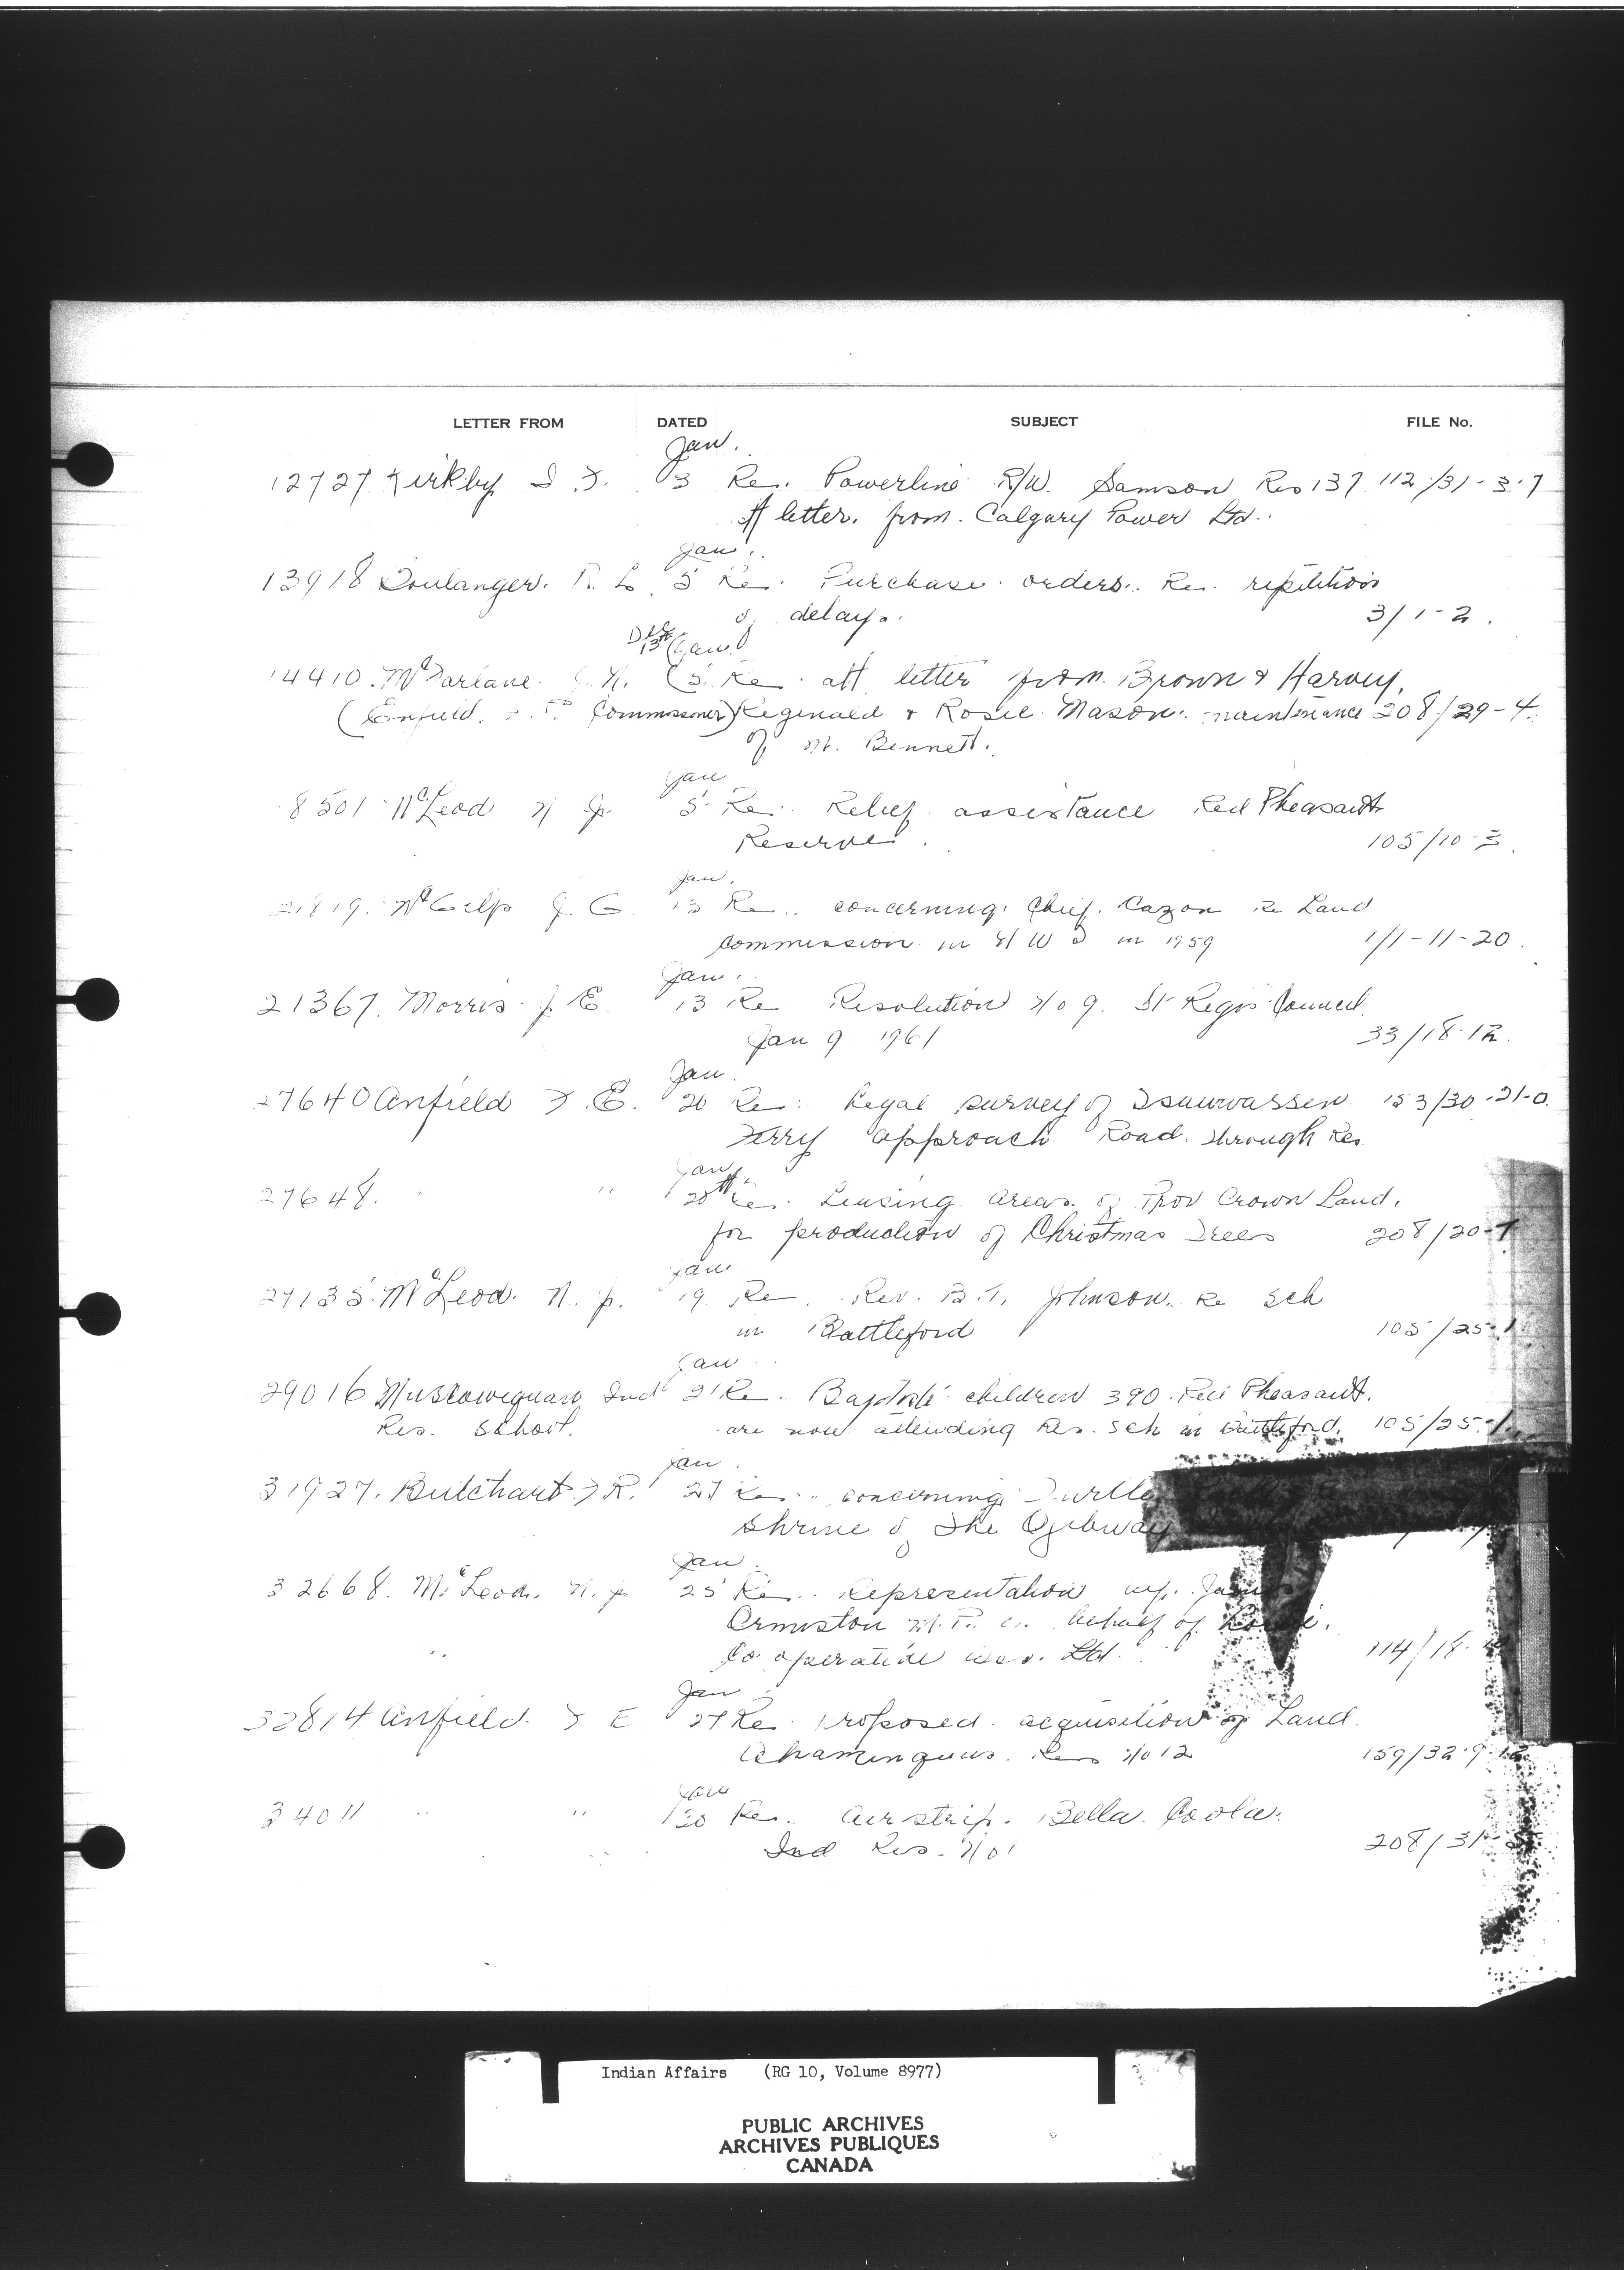 LETTER FROM DATED SUBJECT FILE No.
Jan.
12727 Kirkby 3 Re. Powerline R/W. Samson Res 137 112/31-3-7
letter. from. Calgary Power Ltd.
Jan.
13918 Boulanger. 5 Re. Purchase orders. Re. repetition
of delay. 3/1-2.
Dec
13 Jan
14410. McFarlane. 5. Re. att letter from Brown & Harvey,
(Commissioner) Reginald & Rosie Mason. maintenance 208/29-4.
of Bennett.
Jan
8501 McLeod 5 Re. Relief assistance Red Pheasant
Reserve. 105/10-3.
Jan.
McGilp J. G. 13 Re. concerning Chief. Cazon Re Land
Commission in N W T in 1959 1/1-11-20.
Jan.
21367. Morris J. E. 13 Re Resolution No 9. St Regis Council
Jan 9 1961 33/18-12.
Jan.
27640 Anfield F. E. 20 Re: Legal survey of Tsawwassen 153/30-21-0.
Ferry approach Road. through Res.
Jan
27648. " 20th Re. Leasing areas of Prov Crown Land.
for production of Christmas Trees 208/20-
Jan
27135 McLeod. N. J. 19. Re. Rev. B. T. Johnson. Re Sch
in Battleford 105/25-
Jan
29016 Muscowequan Ind 21 Re. Baptiste children 390. Red Pheasant.
Res. School. are now attending Res. Sch in Battleford. 105/25-1
Jan.
31927. Butchart F R. 27 Re. concerning Turtle
Shrine of The Ojibway
Jan.
32668. McLeod. N. J. 25 Re. Representation
Ormiston M.P. on behalf of
Co operative Ltd. 114/18-
Jan
32814 Anfield. F E 27 Re. proposed acquisition of Land.
Res No 12 159/32-9-12
Jan
34011 " " 30 Re. Airstrip. Bella Coola.
Ind Res. No 1 208/31-
Indian Affairs (RG 10, Volume 8977)
PUBLIC ARCHIVES
ARCHIVES PUBLIQUES
CANADA